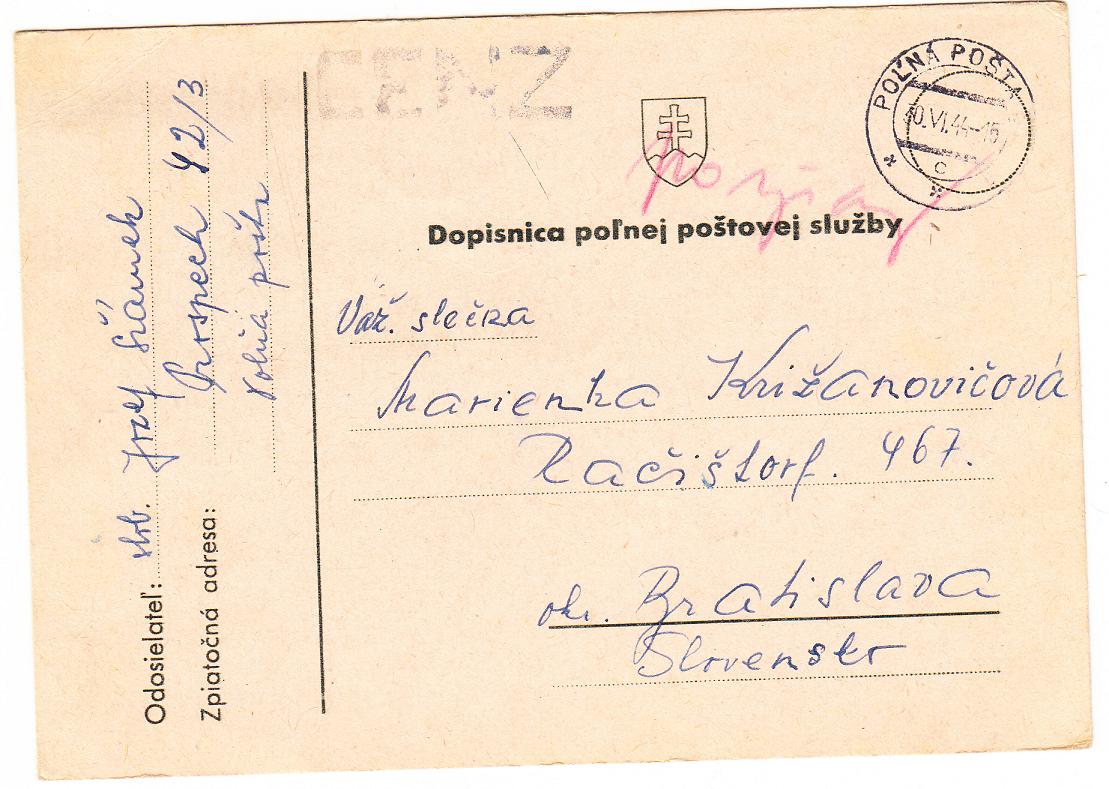 CENZ
POĽNÁ POŠTA
0.VI.44-15
c
Dopisnica poľnej poštovej služby
Váž. slečna
Marienka Križanovičová
Račištorf. 467.
okr. Bratislava
Slovensko
Odosielateľ: slob. Jozef
Zpiatočná adresa: Prospech 42/3
Poľná pošta